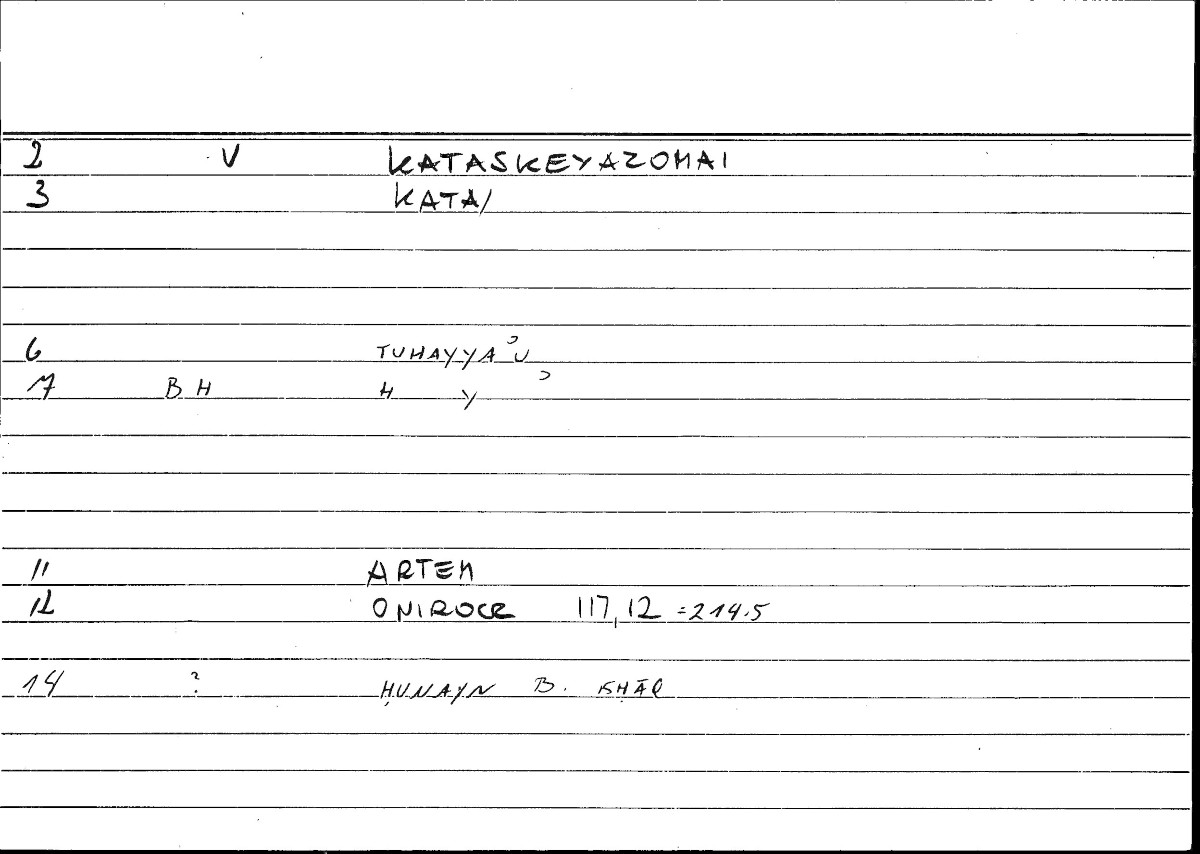 2 V KATASKEYAZOMAI
3 KATA/
6 TUHAYYAʾU
7 BH H Y ʾ
11 ARTEM
12 ONIROCR 117,12 =214.5
14 ? ḤUNAYN B. ISḤĀQ